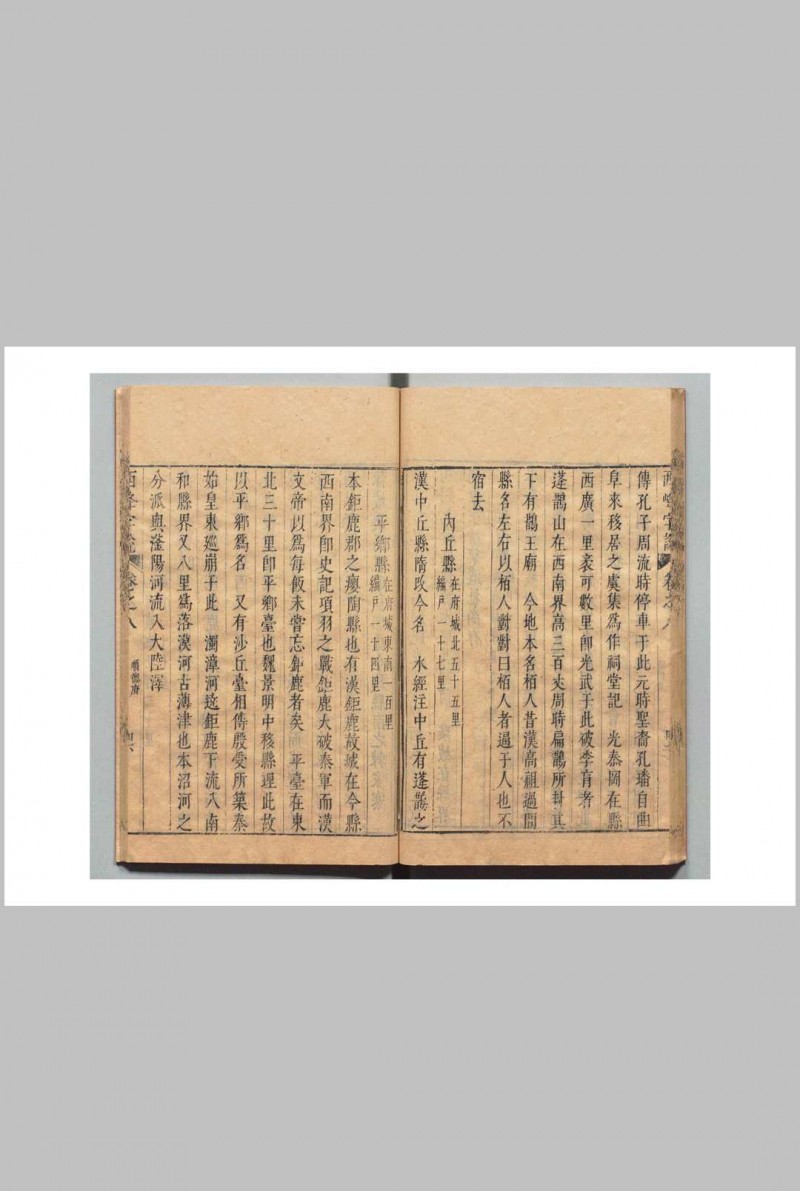 西峰字說
卷之八
傳孔子周流時停車于此元時聖裔孔璠自曲
阜來移居之虞集爲作祠堂記　光泰岡在縣
西廣一里袤可數里卽光武于此破李育者
蓬鵲山在西南界高三百丈周時扁鵲所封其
下有鵲王廟　今地本名栢人昔漢高祖過問
縣名左右以栢人對對曰栢人者過于人也不
宿去
內丘縣在府城北五十五里
編戶一十七里
漢中丘縣隋改今名　水經注中丘有蓬鵲之
平鄉縣在府城東南一百里
編戶一十四里
本鉅鹿郡之癭陶縣也有漢鉅鹿故城在今縣
西南界卽史記項羽之戰鉅鹿大破秦軍而漢
文帝以爲每飯未嘗忘鉅鹿者矣　平臺在東
北三十里卽平鄉臺也魏景明中移縣理此故
以平鄉爲名　又有沙丘臺相傳殷受所築秦
始皇東巡崩于此　濁漳河遶鉅鹿下流入南
和縣界又八里爲落漠河古薄津也本沼河之
分派與滏陽河流入大陸澤
西峰字說
卷之八
順德府
四六